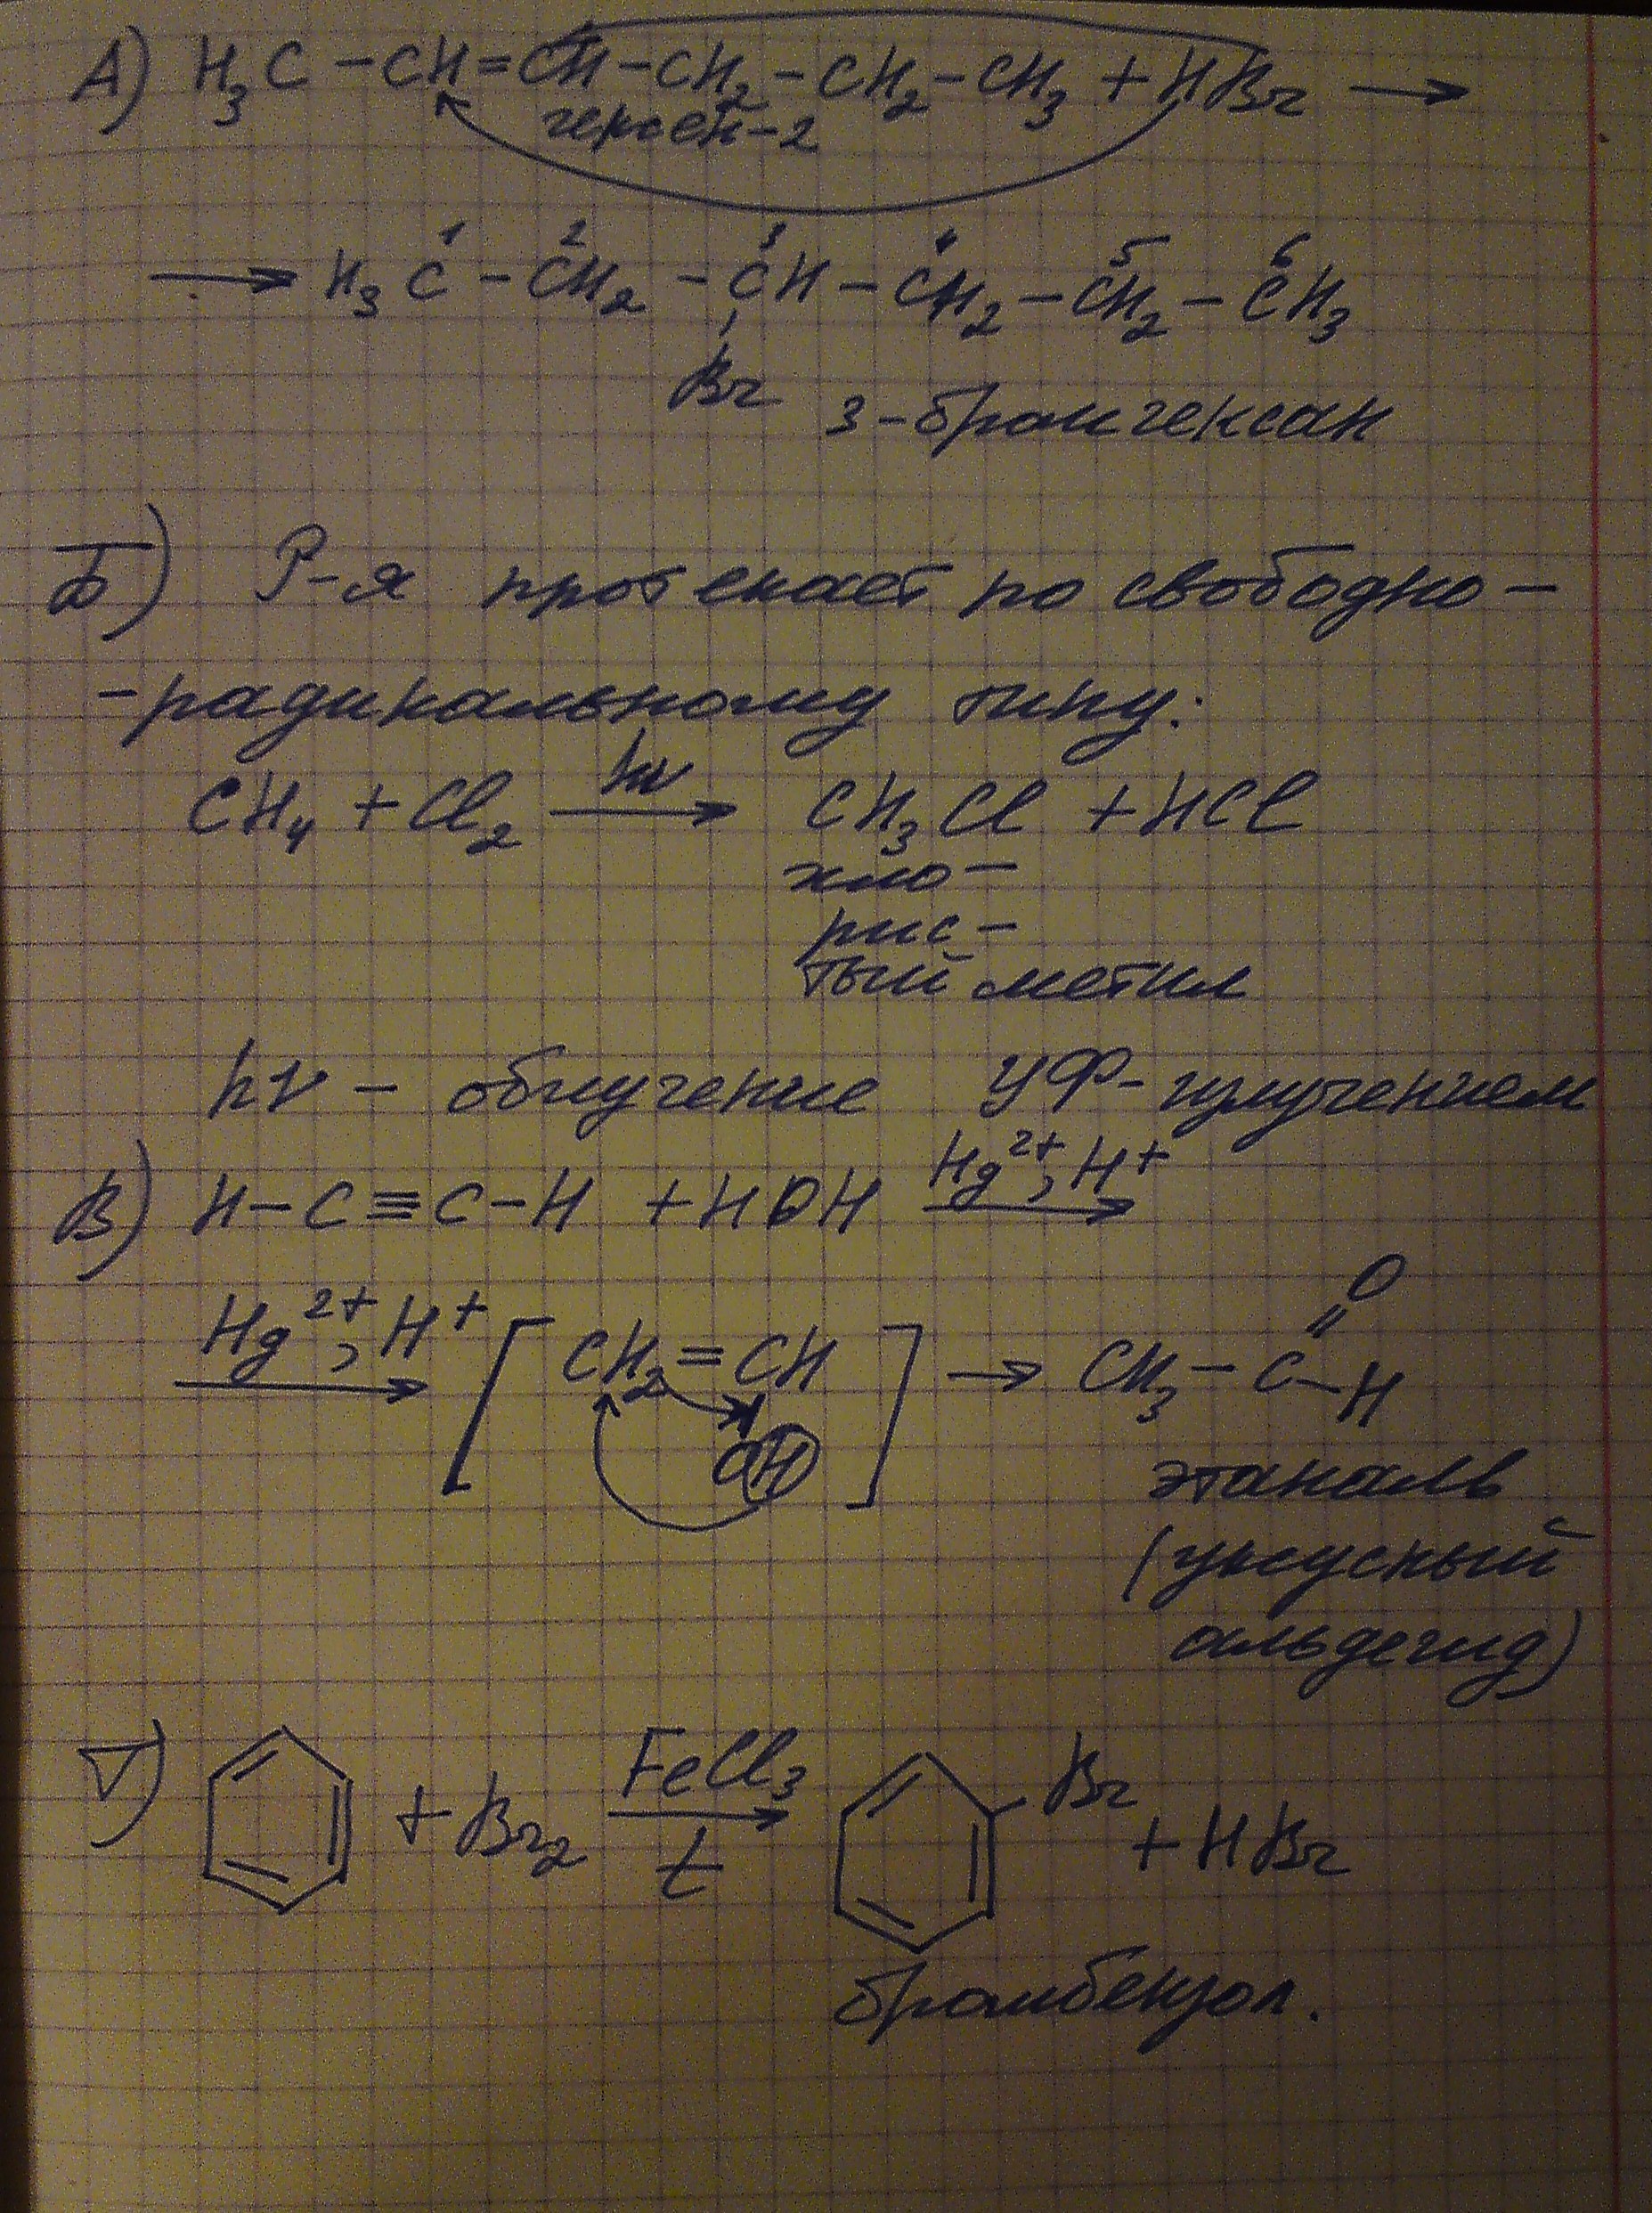 А) H₃C – CH = CH – CH₂ – CH₂ – CH₃ + HBr →
гексен-2
1 2 3 4 5 6
→ H₃C – CH₂ – CH – CH₂ – CH₂ – CH₃
Br 3-бромгексан
Б) Р-я протекает по свободно-
-радикальному типу:
hν
CH₄ + Cl₂ → CH₃Cl + HCl
хло-
рис-
тый метил
hν – облучение УФ-излучением
Hg²⁺, H⁺
В) H – C ≡ C – H + HOH →
O
Hg²⁺, H⁺ → [ CH₂ = CH ] → CH₃ – C – H
OH
этаналь
(уксусный
альдегид)
Г) + Br₂ FeCl₃ → Br + HBr
t
бромбензол.